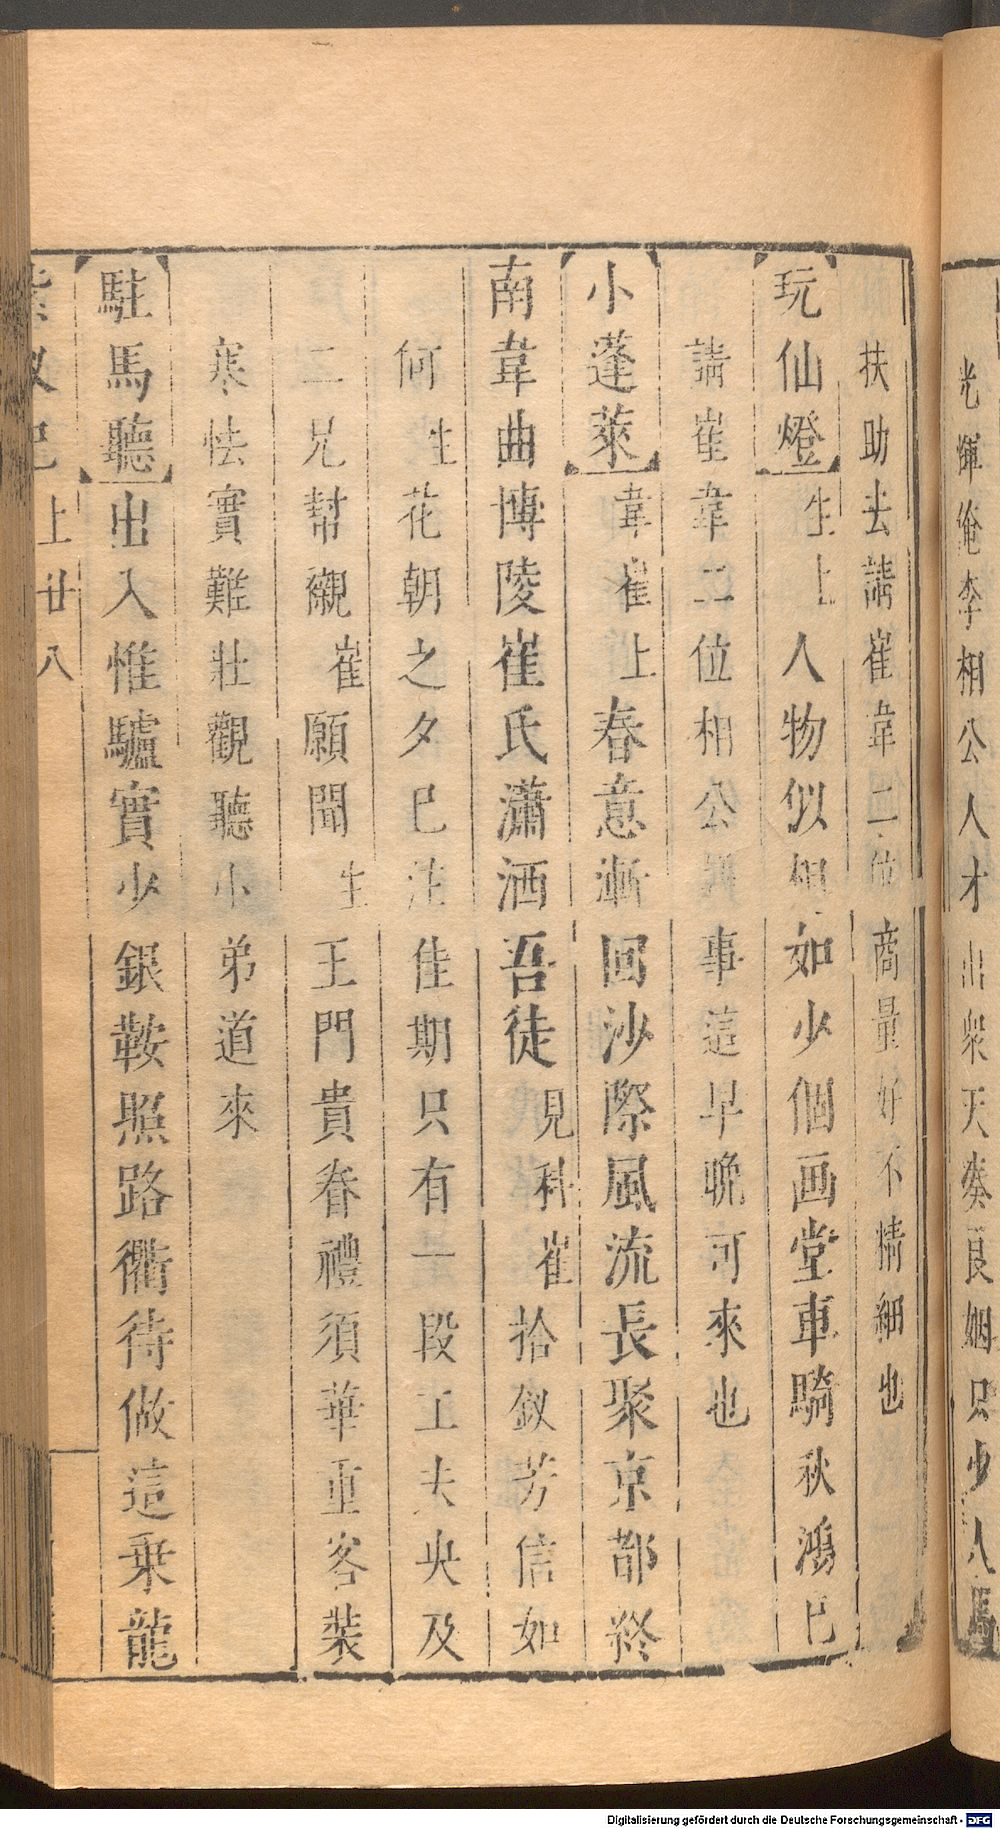 光輝俺李相公人才出衆天奏良姻只少人馬
扶助去請崔韋二位商量好不情細也
玩仙燈 生上 人物似相如少個画堂車騎秋鴻已
請崔韋二位相公 事這早晚可來也
小蓬萊 韋崔上 春意漸回沙際風流長聚京都終
南韋曲博陵崔氏瀟洒吾徒 見科 崔 拾釵芳信如
何 生 花朝之夕已注佳期只有一段工夫央及
二兄幇襯 崔 願聞 生 王門貴眷禮須華重客裝
寒怯實難壯觀聽小弟道來
駐馬聽 出入惟驢實少銀鞍照路衢待做這乗龍
紫釵記 上 廿八
Digitalisierung gefördert durch die Deutsche Forschungsgemeinschaft - DFG